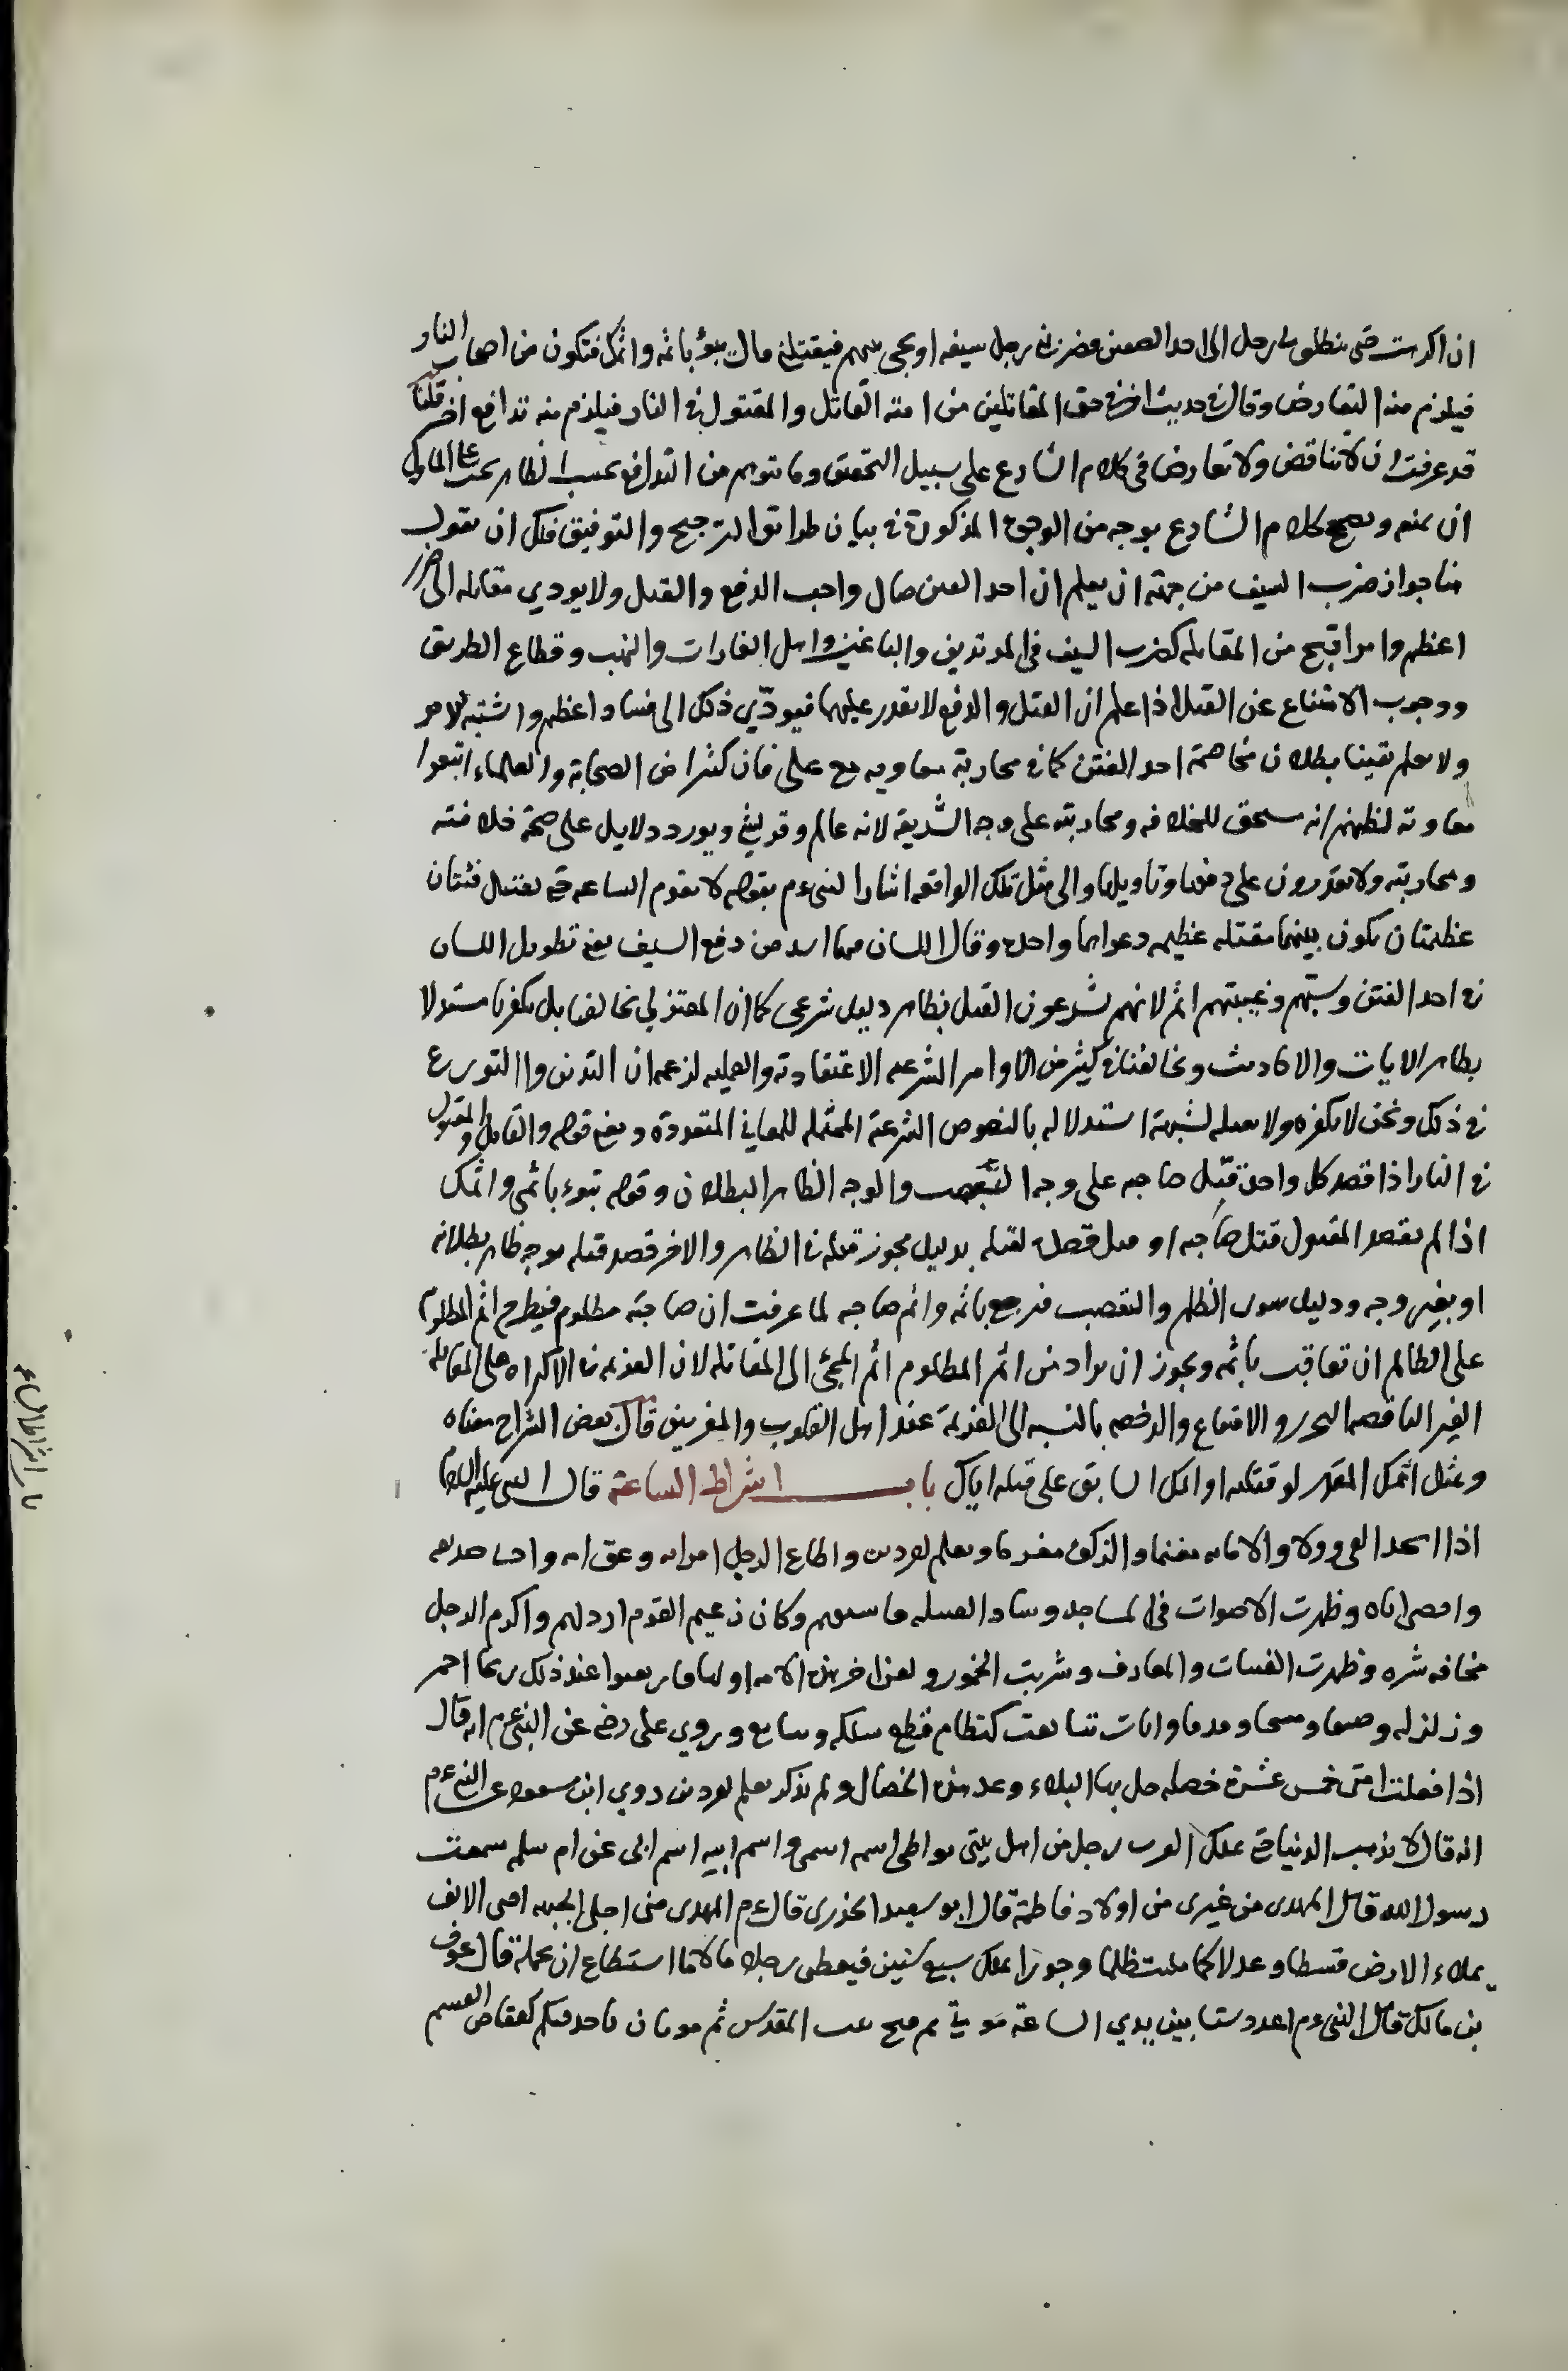 ان اكرهت حتى ينطلق بي رجل الى احد الصفين فضربني رجل بسيفه او يجي سهم فيقتلني قال يبوٴ باثمه واثمك فتكون من اصحاب النار
فيلزم منه التعارض وقال في حديث اخر في حق المقاتلين من امته القاتل والمقتول في النار فيلزم منه تدافع اخر قلنا
قد عرفت ان لا تناقض ولا تعارض في كلام الشارع على سبيل التحقيق وما يتوهم من التدافع بحسب الظاهر يجب على الماول
ان يمنعه ويصحح كلام الشارع بوجه من الوجوه المذكورة في بيان طرائق الترجيح والتوفيق فلك ان تقول
هنا جواز ضرب السيف من جهة ان يعلم ان احد الفئتين ضال واجب الدفع والقتل ولا يودي مقاتلته الى ضرر
اعظم وامر اقبح من المقاتلة كضرب السيف في المرتدين والباغين واهل الغارات والنهب وقطاع الطريق
ووجوب الامتناع عن القتل اذا علم ان القتل والدفع لا يقدر عليهما فيودّي ذلك الى فساد اعظم واشتبه الامر
ولا يعلم يقينا بطلان مخاصمة احد الفئتين كما في محاربة معاويه مع علي فان كثيرا من الصحابة والعلماء اتبعوا
معاوية لظنهم انه مستحق للخلافه ومحاربته على وجه الشريعة لانه عالم وقريشي ويورد دلايل على صحة خلافته
ومحاربته ولا يقدرون على دفعها وتاويلها والى مثل تلك الواقعه اشار النبي عم بقوله لا تقوم الساعه حتى يقتتل فئتان
عظيمتان يكون بينهما مقتله عظيمه دعواهما واحده وقال اللسان فيها اشد من دفع السيف يعني تطويل اللسان
في احد الفئتين وسبّهم وغيبتهم اثم لانهم يشرعون القتل بظاهر دليل شرعي كما ان المعتزلي يخالفنا بل يكفرنا مستدلا
بظاهر الايات والاحاديث ويخالفنا في كثير من الاوامر الشرعيه الاعتقادية والعمليه لزعمه ان التدين والتورع
في ذلك ونحن لا نكفره ولا نقتله لشبهة استدلاله بالنصوص الشرعية المحتمله للمعاني المتعددة ومعنى قوله والقاتل والمقتول
في النار اذا قصد كل واحد قتل صاحبه على وجه التعصب والوجه الظاهر البطلان وقوله تبوء باثمي واثمك
اذا لم يقصد المقتول قتل صاحبه او قصد لقتله بدليل مجوز قتله في الظاهر والاخر قصد قتله بوجه ظاهر بطلانه
او بغير وجه ودليل سوى الظلم والتعصب فيرجع باثمه واثم صاحبه لما عرفت ان صاحبه مظلوم فيطرح اثم المظلوم
على الظالم ان تعاقب باثمه ويجوز ان يراد من اثم المظلوم اثم المجئ الى المقاتله لان العزيمه في الاكراه على المقاتلة
الغير الناقصه التحرز والامتناع والرخصه بالنسبه الى العزيمة عند اهل القلوب والمقربين قال بعض الشراح معناه
ومثل اثمك المقدر لو قتلته او اثمك السابق على قتله اياك باب اشراط الساعة قال النبي عليه السلام
اذا اتخذ الفي دولا والامانه مغنما والزكوة مغرما وتعلم لغير دين واطاع الرجل امراته وعق امه وادنا صديقه
واقصى اباه وظهرت الاصوات في المساجد وساد القبيله فاسقهم وكان زعيم القوم ارذلهم واكرم الرجل
مخافه شره وظهرت القينات والمعازف وشربت الخمور ولعن اخر هذه الامه اولها فارتقبوا عند ذلك ريحا احمر
وزلزله وخسفا ومسخا وقذفا وايات تتابعت كنظام قطع سلكه وتتابع وروي علي رض عن النبي عم انه قال
اذا فعلت امتي خمس عشرة خصله حل بها البلاء وعد هذه الخصال ولم يذكر تعلم لغير دين روي ابن مسعود عن النبي عم
انه قال لا تذهب الدنيا حتى يملك العرب رجل من اهل بيتي يواطي اسمه اسمي واسم ابيه اسم ابي عن ام سلمه سمعت
رسول الله قال المهدي من عترتي من اولاد فاطمة قال ابو سعيد الخدري قال عم المهدي مني اجلى الجبهه اقنى الانف
يملاء الارض قسطا وعدلا كما ملئت ظلما وجورا يملك سبع سنين فيعطى رجلا مالا ما استطاع ان يحمله قال عوف
بن مالك قال النبي عم اعدد ستا بين يدي الساعة موتي ثم فتح بيت المقدس ثم موتان ياخذ فيكم كقعاص الغنم